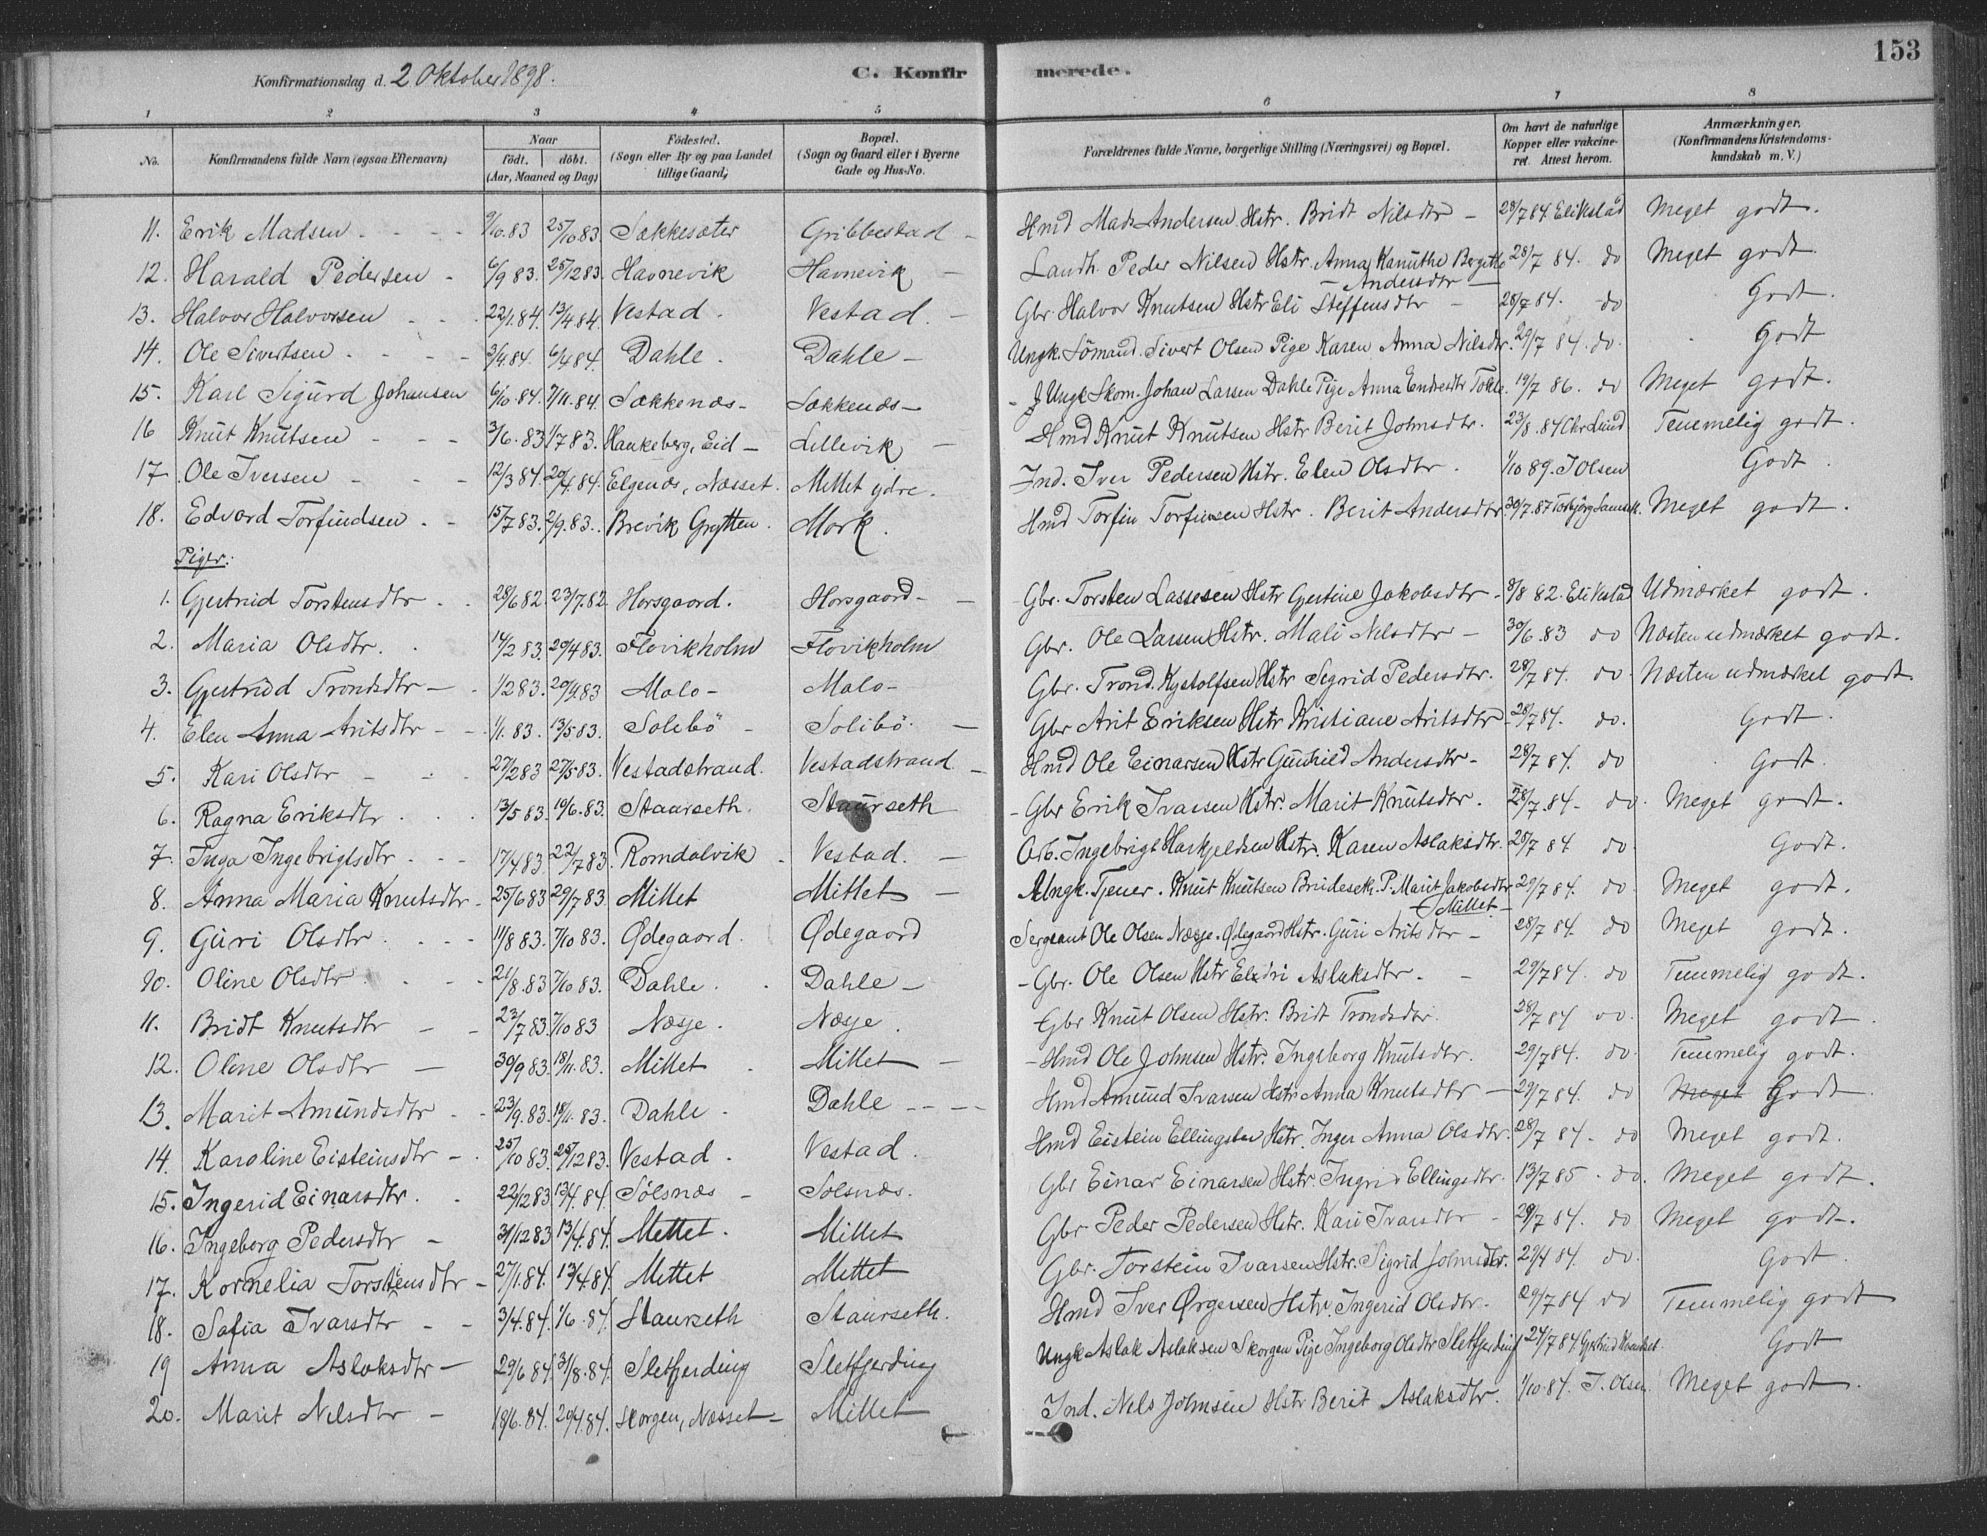 Konfirmationsdag d. 2 Oktober 1898. C. Konfirmerede. 153
1 2 3 4 5 6 7 8
No. Konfirmandens fulde Navn (ogsaa Efternavn) Naar födt. döbt. (Aar, Maaned og Dag) Födested. (Sogn eller By og paa Landet tillige Gaard) Bopæl. (Sogn og Gaard eller i Byerne Gade og Hus-No. Forældrenes fulde Navne, borgerlige Stilling (Næringsvei) og Bopæl. Om havt de naturlige Kopper eller vakcineret. Attest herom. Anmærkninger. (Konfirmandens Kristendomskundskab m. V.)
11. Erik Madsen - 9/10.83 25/10.83 Sækkesæter Gribbestad - Hmd Mads Andersen Hstr. Bridt Nilsdtr - 28/7 84. Eli Kslad Meget godt.
12. Harald Pedersen - 6/9 83. 25/12 83. Havnevik Havnevik - Landh. Peder Nilsen Hstr. Anna Hanuthe Bergithe Andersdtr - 28/7 84. do Meget godt.
13. Halvor Halvorsen - 22/1.84. 13/4 84. Vestad. Vestad. - Gbr. Halvor Knutsen Hstr Eli Steffensdtr - 28/7 84. do Godt.
14. Ole Sivertsen - 3/4 84. 6/4 84. Dahle. Dahle - Ungk. Sömand. Sivert Olsen Pige Karen Anna Nilsdtr. 29/7 84. do. Godt
15. Karl Sigurd Johansen 6/10.84. 7/11.84. Sækkenæs - Sækkenæs - Ungk Skom. Johan Larsen Dahle Pige Anna Endresdtr Tokle. 19/7 86. do Meget godt.
16 Knut Knutsen - 3/6.83 1/7 83. Haukeberg, Eid - Lillevik - Hmd Knut Knutsen Hstr Berit Johnsdtr. 23/8.84 Chr Lund Temmelig godt.
17. Ole Iversen - 12/3 84. 20/4.84. Elgenæs, Næsset. Mittet ydre. Ind. Iver Pedersen Hstr. Elen Olsdtr. 1/10 89. J Olsen Godt.
18. Edvard Torfindsen. - 15/7 83. 2/9.83. Brevik Grytten. Mork. Hmd Torfin Torfinsen Hstr. Berit Andersdtr 30/7.87 Torbjörg Meget godt.
Piger:
1. Gjertrud Torstensdtr. 28/6 82. 23/7.82. Horsgaard. Horsgaard - Gbr. Torsten Lassesen Hstr Gjertine Jakobsdtr - 8/8 82. Eli Kslad Udmærket godt.
2. Maria Olsdtr. 14/2 83. 29/4 83. Flovikholm Flovikholm Gbr. Ole Larsen Hstr. Mali Nilsdtr - 30/6.83 do Næsten udmærket godt.
3. Gjertrud Trondsdtr - 1/2 83. 29/4 83 Malo - Malo - Gbr. Trond. Kystolfsen Hstr Sigrid Pedersdtr. 28/7 84. do. Næsten udmærket godt
4. Elen Anna Aritsdtr - 1/1.83. 13/5 83. Solibö - Solibö. - Gbr Arit Eriksen Hstr Kristiane Aritsdtr. 28/7 84. do. Godt.
5. Kari Olsdtr - 27/2 83 27/5 83. Vestadstrand. Vestadstrand - Hmd Ole Einarsen Hstr Gunhild Andersdtr - 28/7 84. do Godt.
6. Ragna Eriksdtr. 13/5 83. 10/6.83. Staurseth. Staurseth - Gbr Erik Ivarsen Hstr. Marit Knutsdtr. 28/7.84 - do. Meget godt.
7. Inga Ingebrigtsdtr. 17/4 83 22/7 83. Romdalvik. Vestad. - Arb. Ingebrigt Haskjeldsen Hstr. Karen Aslaksdtr. 28/7 84 do Godt.
8. Anna Maria Knutsdtr - 25/6 83 29/7 83. Mittet Mittet - Ungk. Tjener. Knut Knutsen P. Marit Jakobsdtr Mittet - 29/7 84. do Meget godt.
9. Guri Olsdtr. 11/8 83. 7/10 83. Ødegaard. Ødegaard Sergeant Ole Olsen Næsje. Ødegaard Hstr. Guri Arits dtr - 28/7 84. do Meget godt.
10. Oline Olsdtr. 21/8.83 7/10 83. Dahle. Dahle - Gbr. Ole Olsen Hstr Eldri Aslaksdtr. - 29/7 84. do Temmelig godt.
11. Bridt Knutsdtr - 22/7 83. 7/10 83 Næsje. Næsje. Gbr Knut Olsen Hstr. Bridt Trondsdtr. 28/7 84 do. Meget godt.
12. Oline Olsdtr - 30/9 83. 18/11.83. Mittet Mittet - Hmd Ole Johnsen Hstr. Ingeborg Knutsdtr. 29/7 84. do. Temmelig godt.
13. Marit Amundsdtr. 23/9.83. 18/11.83. Dahle. Dahle - Hmd Amund Ivarsen Hstr Anna Knutsdtr - 29/7 84. do Meget Godt.
14. Karoline Eisteinsdtr - 25/10 83. 25/12 83. Vestad. Vestad. Hmd Eistein Ellingsen Hstr. Inger Anna Olsdtr. 28/7 84. do Meget godt.
15. Ingerid Einarsdtr. 22/12 83 13/4.84. Sölsnæs - Solsnæs. Gbr Einar Einarsen Hstr. Ingrid Ellingsdtr. 13/7 85. do. Meget godt.
16. Ingeborg Pedersdtr - 31/12 83 13/4.84. Mittet. Mittet Gbr Peder Pedersen Hstr. Kari Ivarsdtr - 29/7 84. do Meget godt.
17. Kornelia Torsteinsdtr - 27/1.84. 13/4.84. Mittet Mittet Gbr. Torstein Ivarsen Hstr. Sigrid Johnsdtr. 29/4 84. do. Godt.
18. Sofia Ivarsdtr - - 3/4.84. 1/6.84. Staurseth Staurseth. Hmd Iver Ørgersen Hstr. Ingerid Olsdtr. 29/7 84 do Temmelig godt
19 Anna Aslaksdtr - 29/6 84. 31/8.84. Sletfjerding Sletfjerding Ungk Aslak Aslaksen Skorgen Pige Ingeborg Olsdtr Sletfjerding 24/7 84 Gjertrud Godt
20. Marit Nilsdtr - 18/6.84. 29/4.84. Skorgen, Næsset - Mittet Ind. Nels Johnsen Hstr Berit Aslaksdtr. 1/10 84. J. Olsen Meget godt.